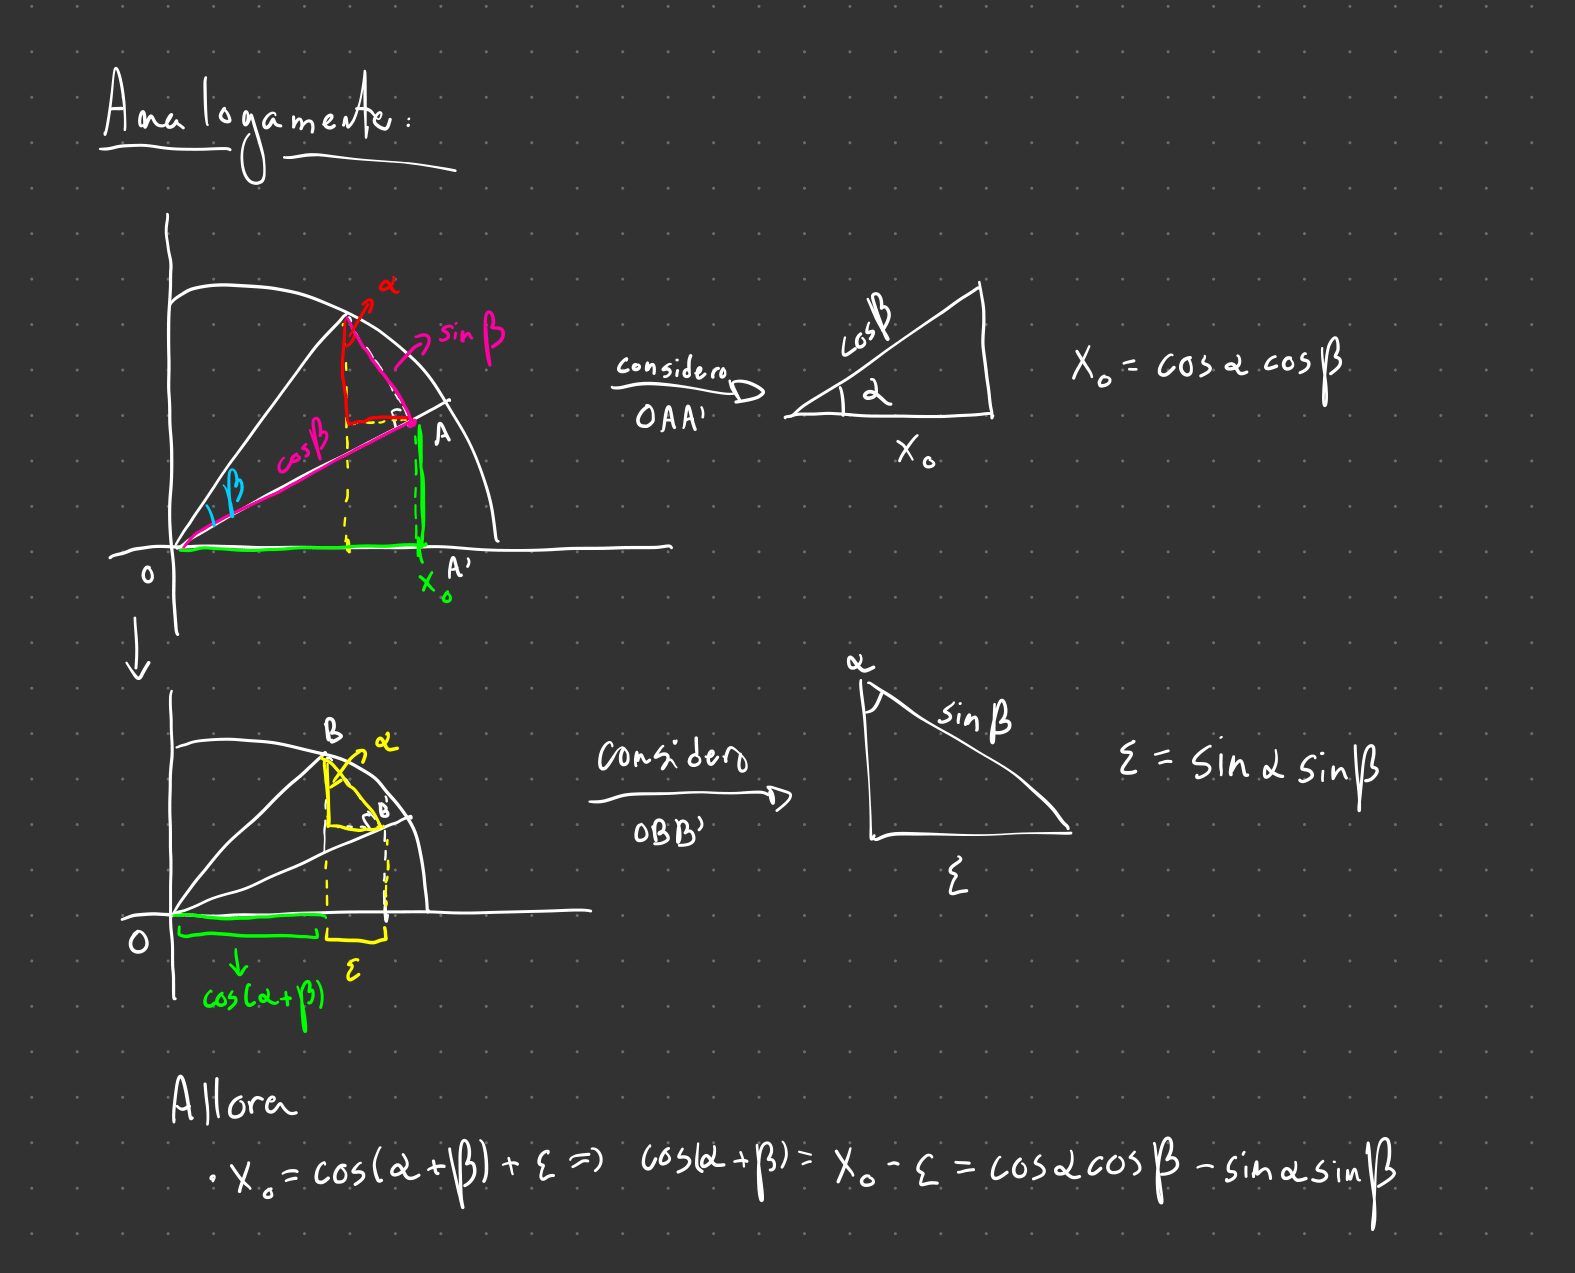 Analogamente:
α
sin β
cosβ
β
A
O
A'
x₀
considero
OAA'
cosβ
α
x₀
x₀ = cos α cos β
B
α
B'
O
ε
cos(α+β)
Considero
OBB'
α
sin β
ε
ε = sin α sin β
Allora
• x₀ = cos(α+β) + ε => cos(α+β) = x₀ - ε = cos α cos β - sin α sin β